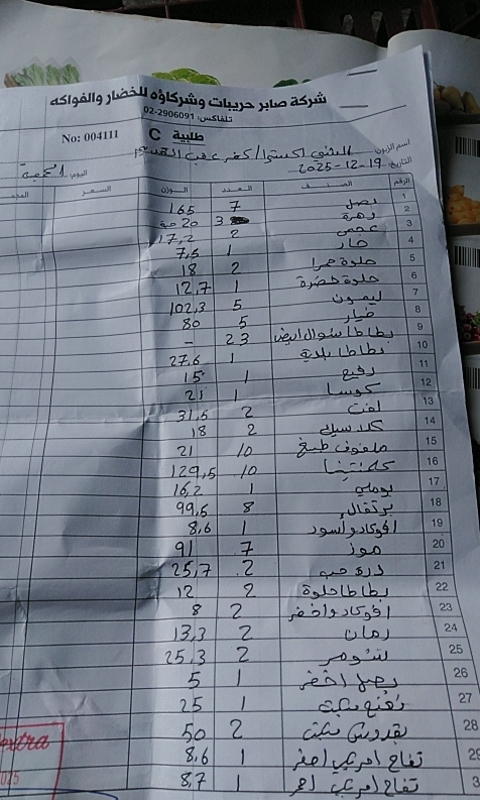 شركة صابر حريبات وشركاؤه للخضار والفواكه
تلفاكس: 02-2906091
طلبية C
No: 004111
اسم الزبون: اكسترا / كفر عقب القديم
التاريخ: 19-12-2025 اليوم: الجمعة
الرقم الصنف العدد الوزن السعر
1 بصل 7 165
2 زهرة 3 20
3 عجمي 2 17,2
4 حار 1 7,5
5 حلوة حمرا 2 18
6 حلوة خضرة 1 12,7
7 ليمون 5 102,3
8 خيار 5 80
9 بطاطا سوال ابيض 23 -
10 بطاطا بلدية 1 27,6
11 رفيع 1 15
12 كوسا 1 21
13 لفت 2 31,5
14 كلاسيك 2 18
15 ملفوف طبخ 10 21
16 كلمنتينا 10 129,5
17 بوملي 1 16,2
18 برتقال 8 99,5
19 افوكادو اسود 1 8,6
20 موز 7 91
21 ذرة حب 2 25,7
22 بطاطا حلوة 2 12
23 افوكادو اخضر 2 8
24 رمان 2 13,3
25 2 25,3
26 بصل اخضر 1 5
27 نعنع 1 25
28 بقدونس 2 50
29 تفاح امريكي اصفر 1 8,6
3 تفاح امريكي احمر 1 8,7
extra
2025